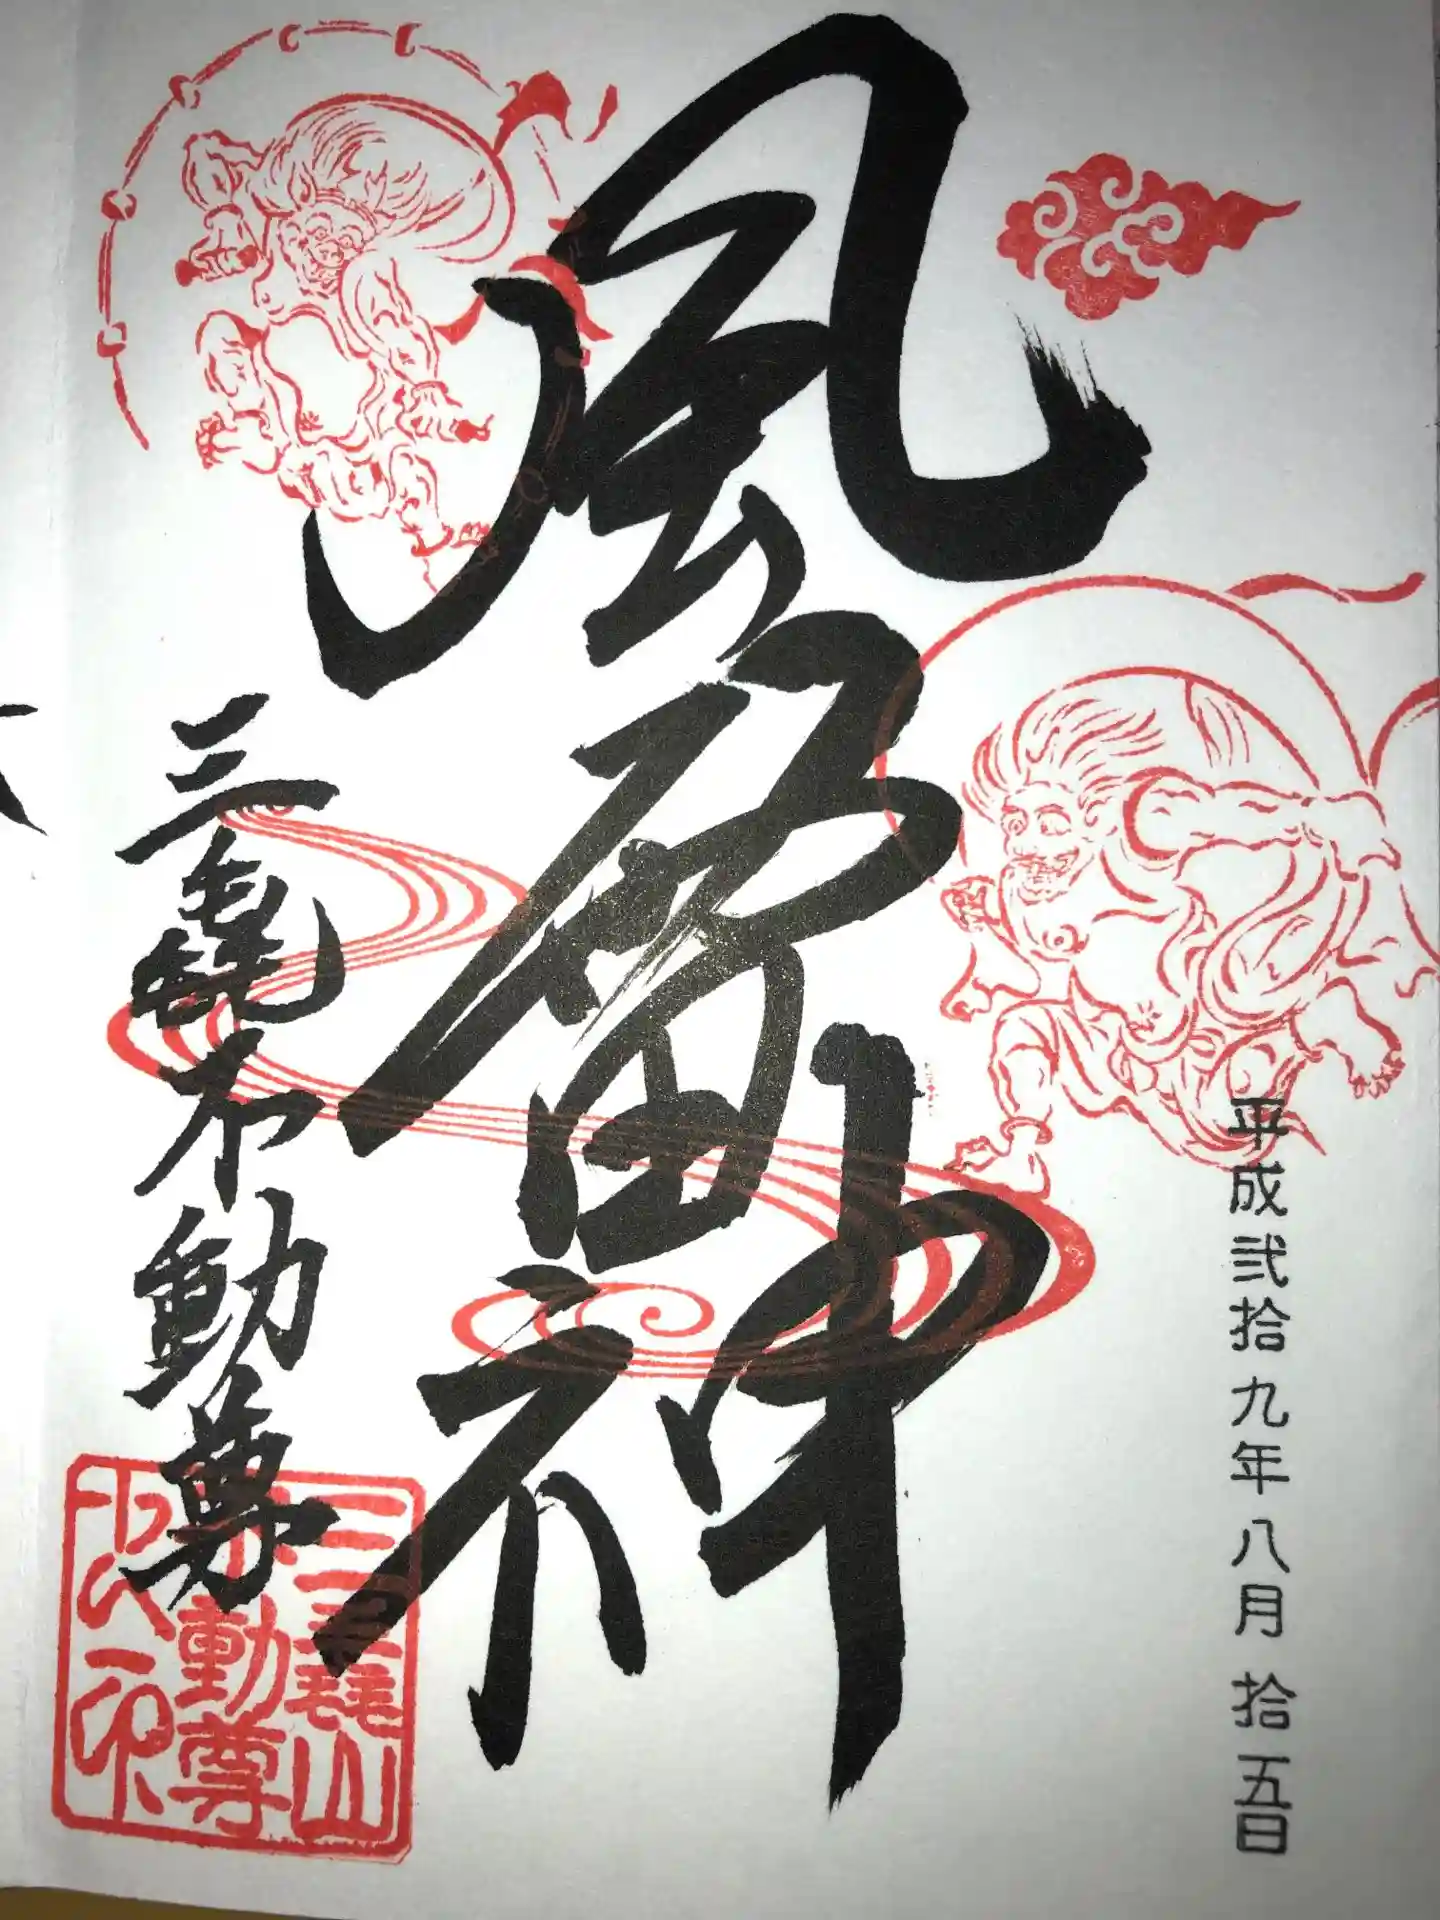 平成弐拾九年八月拾五日
風雷神
三毳不動尊
三毳山
不動尊